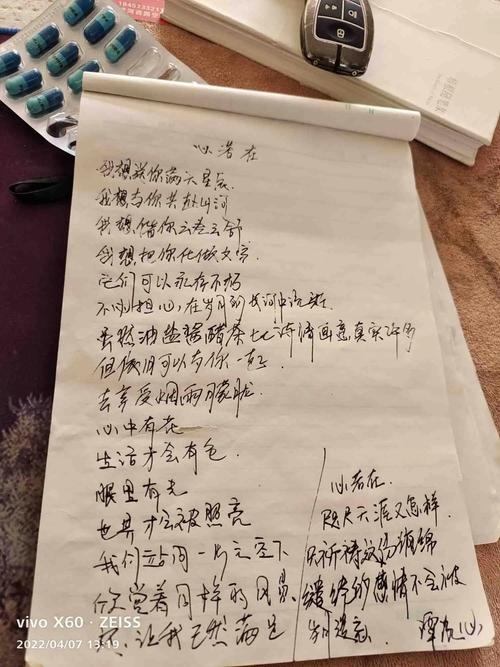 1845733321
心若在
我想送你满天星辰
我想与你共赴山河
我想借你云卷云舒
我想把你化做文字.
它们可以永存不朽
不必担心,在岁月的长河中沉
虽然油盐酱醋茶比诗情画意真实许多
但依旧可以与你一起
去享受烟雨朦胧.
心中有花
生活才会有色.
眼里有光
世界才会被照亮
我们站同一片天空下
欣赏着同样的风景
让我已然满足
心若在.
咫尺天涯又怎样.
只祈祷这份锦
缠绵的感情不会被
心
vivo X60 · ZEISS
2022/04/07 13:19